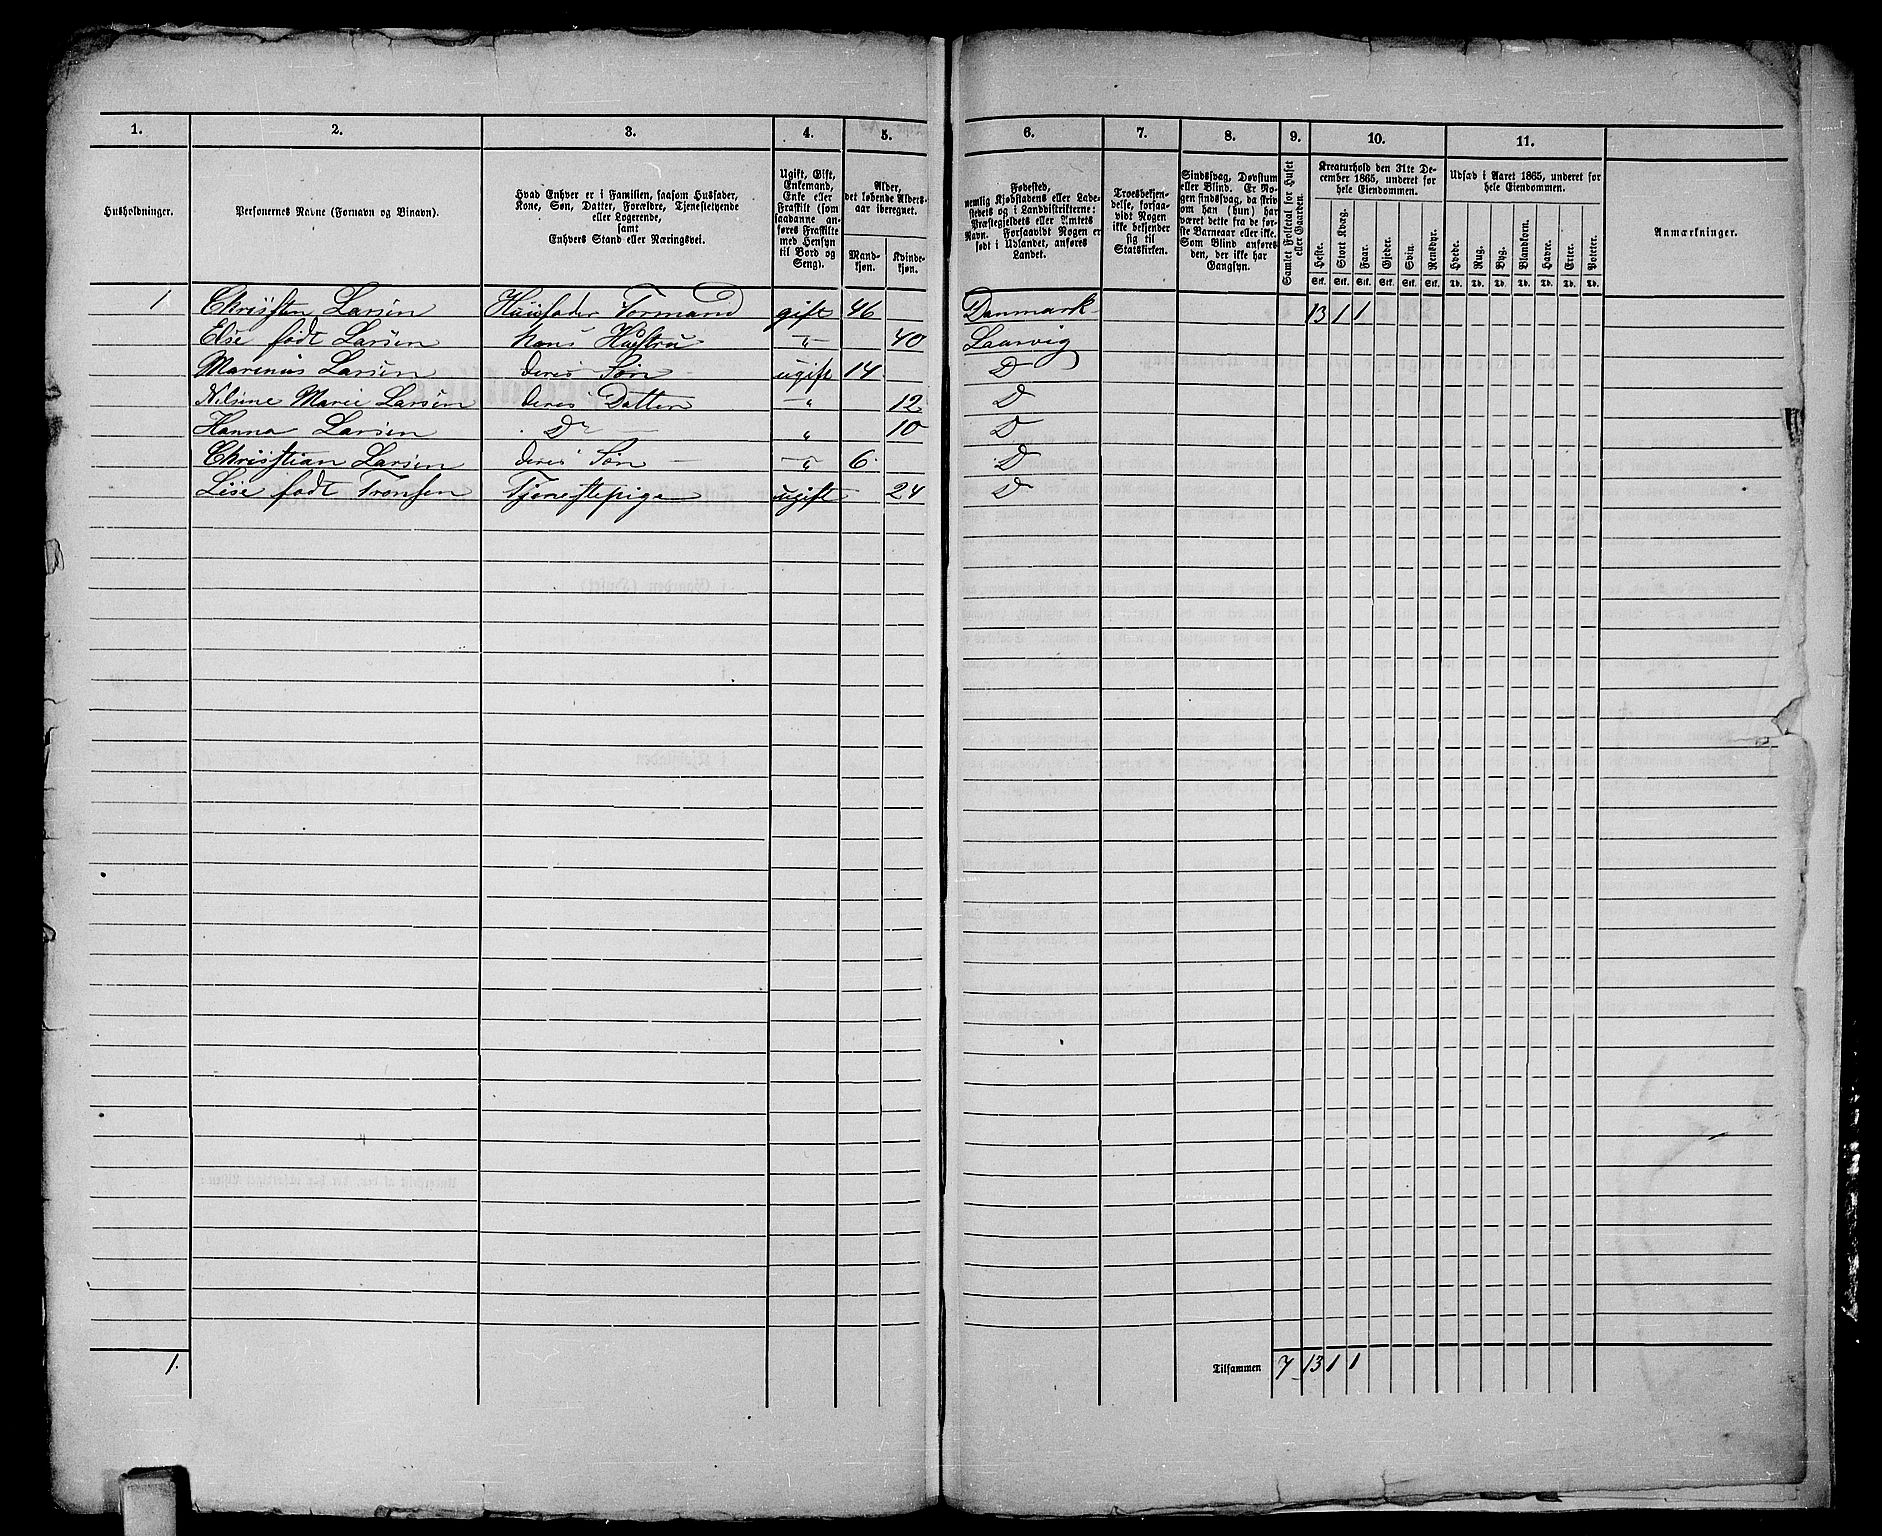 1. 2. 3. 4. 5. 6. 7. 8. 9. 10. 11.
Husholdninger.
Personernes Navne (Fornavn og Binavn).
Hvad Enhver er i Familien, saasom Husfader,
Kone, Søn, Datter, Forældre, Tjenestetyende
eller Logerende,
samt
Enhvers Stand eller Næringsvei.
Ugift, Gift,
Enkemand,
Enke eller
Fraskilt (som
saadanne an-
føres Fraskilte
med Hensyn
til Bord og
Seng).
Alder,
det løbende Alders-
aar iberegnet.
Mand-
kjøn.
Kvinde-
kjøn.
Fødested,
nemlig Kjøbstadens eller Lade-
stedets og i Landdistrikterne:
Præstegjeldets eller Amtets
Navn. Forsaavidt Nogen er
født i Udlandet, anføres
Landet.
Troesbekjen-
delse, forsaa-
vidt Nogen
ikke bekjender
sig til
Statskirken.
Sindssvag, Døvstum
eller Blind. Er No-
gen sindssvag, da skriv
om han (hun) har
været dette fra de før-
ste Barneaar eller ikke.
Som Blind anføres
den, der ikke har
Gangsyn.
Samlet Folketal for Huset
eller Gaarden.
Kreaturhold den 31te De-
cember 1865, underet for
hele Eiendommen.
Heste. Stort Kvæg. Faar. Gjeder. Svin. Rensdyr.
Stk. Stk. Stk. Stk. Stk. Stk.
Udsæd i Aaret 1865, underet for
hele Eiendommen.
Hvede. Rug. Byg. Blandkorn. Havre. Erter. Poteter.
Td. Td. Td. Td. Td. Td. Td.
Anmærkninger.
1 Christen Larsen Huusfader Formand gift 46 Danmark 13 1 1
Else født Larsen Hans Hustru " 40 Laurvig
Marinus Larsen deres Søn ugift 14 D
Nilsine Marie Larsen deres Datter " 12 D
Hanna Larsen Do " 10 D
Christian Larsen deres Søn " 6 D
Lise født Tronsen Tjenestepige ugift 24 D
1. Tilsammen 7 13 1 1